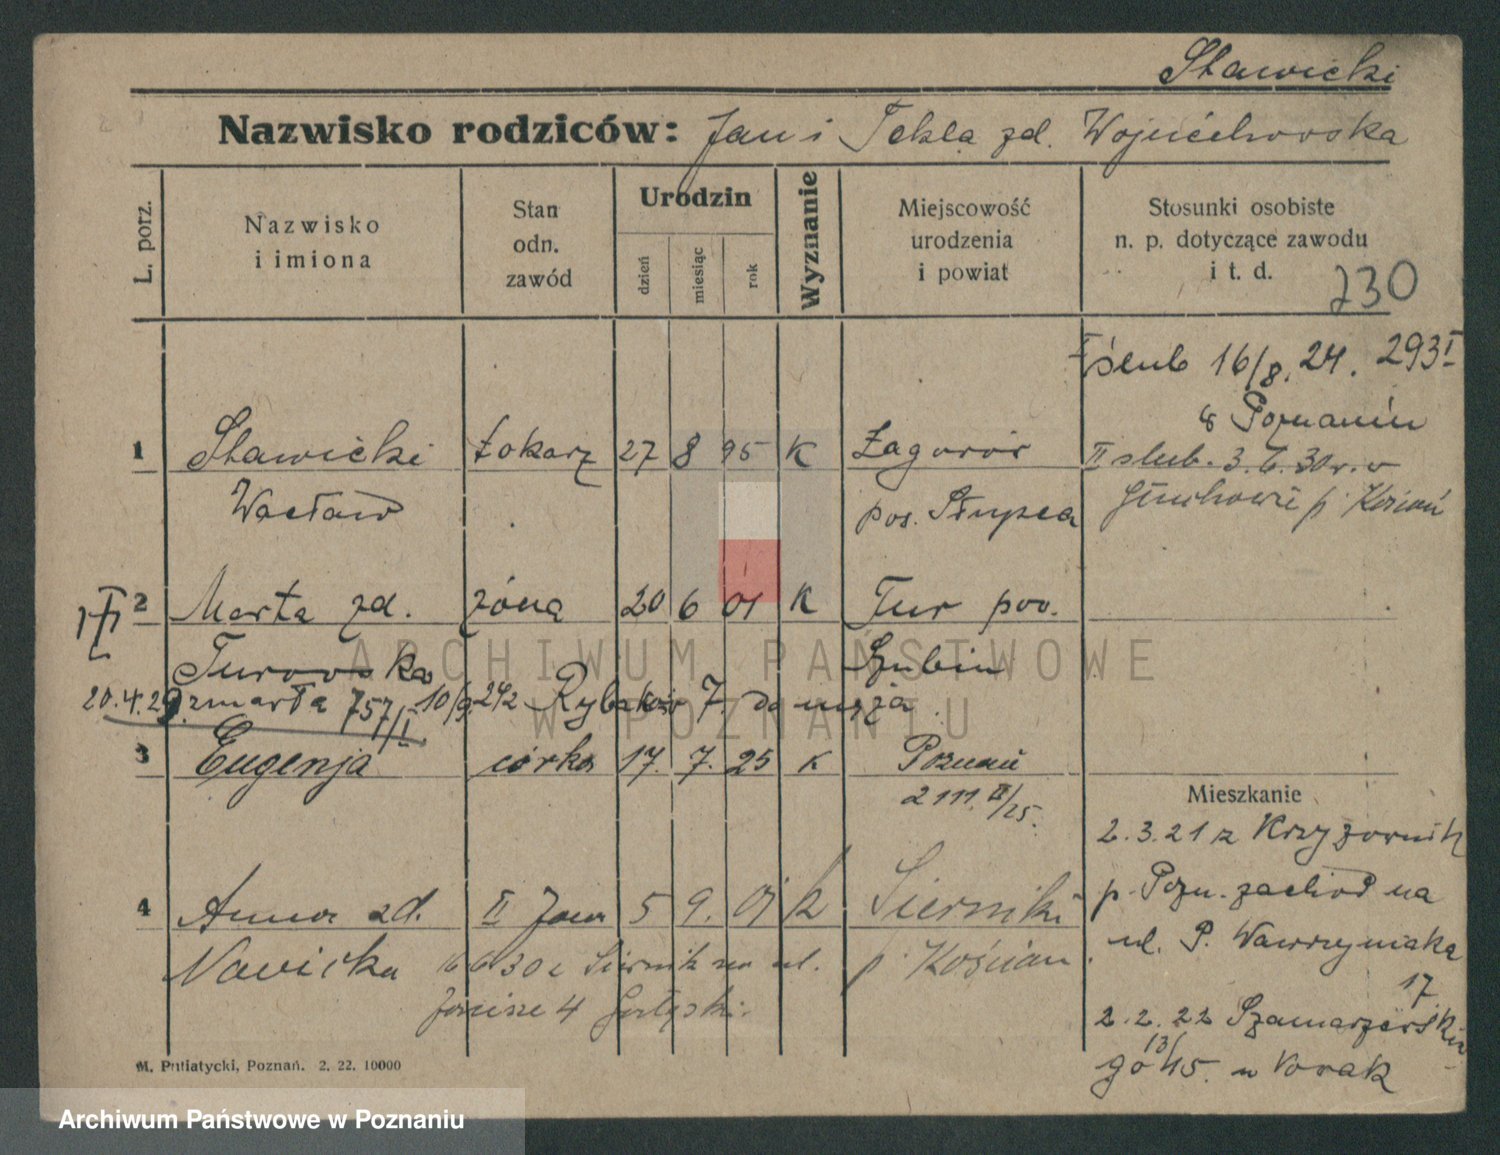 Sławicki
Nazwisko rodziców: Jan i Tekla zd. Wojciechowska
L. porz.
Nazwisko
i imiona
Stan
odn.
zawód
Urodzin
dzień
miesiąc
rok
Wyznanie
Miejscowość
urodzenia
i powiat
Stosunki osobiste
n. p. dotyczące zawodu
i t. d.
730
I ślub 16/8. 24. 293 I
w Poznaniu
1 Sławicki tokarz 27 8 95 K Zagorów
II slub. 3. 6. 30 r. w
Wacław pow. Słupca
Głuchowie p. Kościan
2 Marta zd. żona 20 6 01 K Tur pow.
Turowska Szubin
20. 4. 29. zmarła 757/I 10/9. 242 Rybaków 7.
3 Eugenja córka 17. 7. 25 K Poznań
2111 II/25.
Mieszkanie
2. 3. 21 z Krzyżownik
p. Pozn. zachod na
4 Anna zd. II żona 5 9. 01 k Sierniki
ul. P. Wawrzyniaka
17.
Nowicka 16 6 30 z Siernik na ul. p. Kościan
4
2. 2. 22 Szamarzewskie
go 13/45. u Nowak
M. Putiatycki, Poznań. 2. 22. 10000
ARCHIWUM PAŃSTWOWE
W POZNANIU
Archiwum Państwowe w Poznaniu